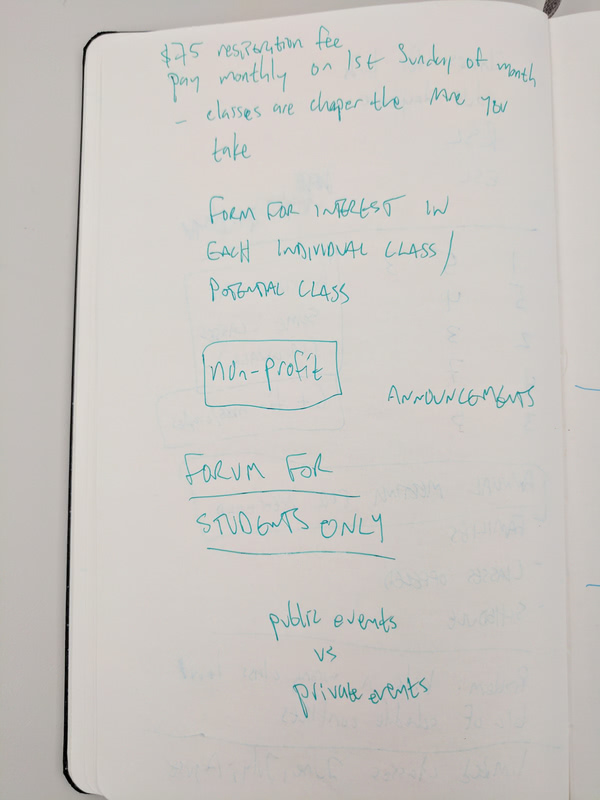 $75 registration fee
pay monthly on 1st Sunday of month
- classes are chaper the more you
take
FORM FOR INTEREST IN
EACH INDIVIDUAL CLASS/
POTENTIAL CLASS
non-profit
ANNOUNCEMENTS
FORUM FOR
STUDENTS ONLY
public events
vs
private events